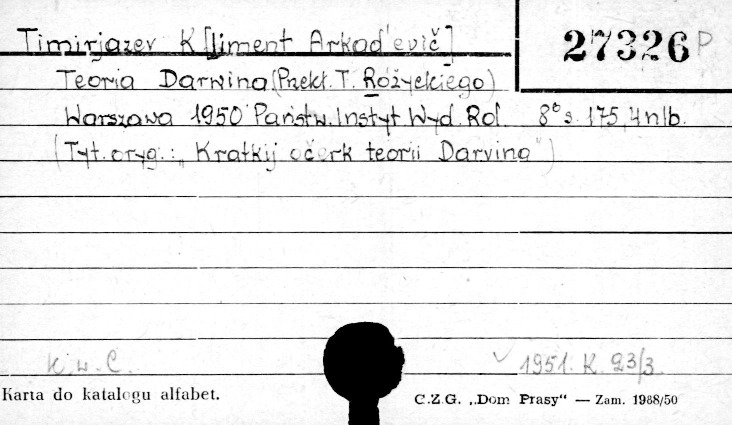 Timirjazev K[liment Arkad'evič]
27326 P
Teoria Darwina (Przekł. T. Różyckiego)
Warszawa 1950 Państw. Instyt. Wyd. Rol. 8° s. 175, 4 nlb.
(Tyt. oryg.: „Kratkij očerk teorii Darvina")
K. w. C.
1951. K. 93/3
Karta do katalogu alfabet.
C.Z.G. „Dom Prasy" — Zam. 1988/50